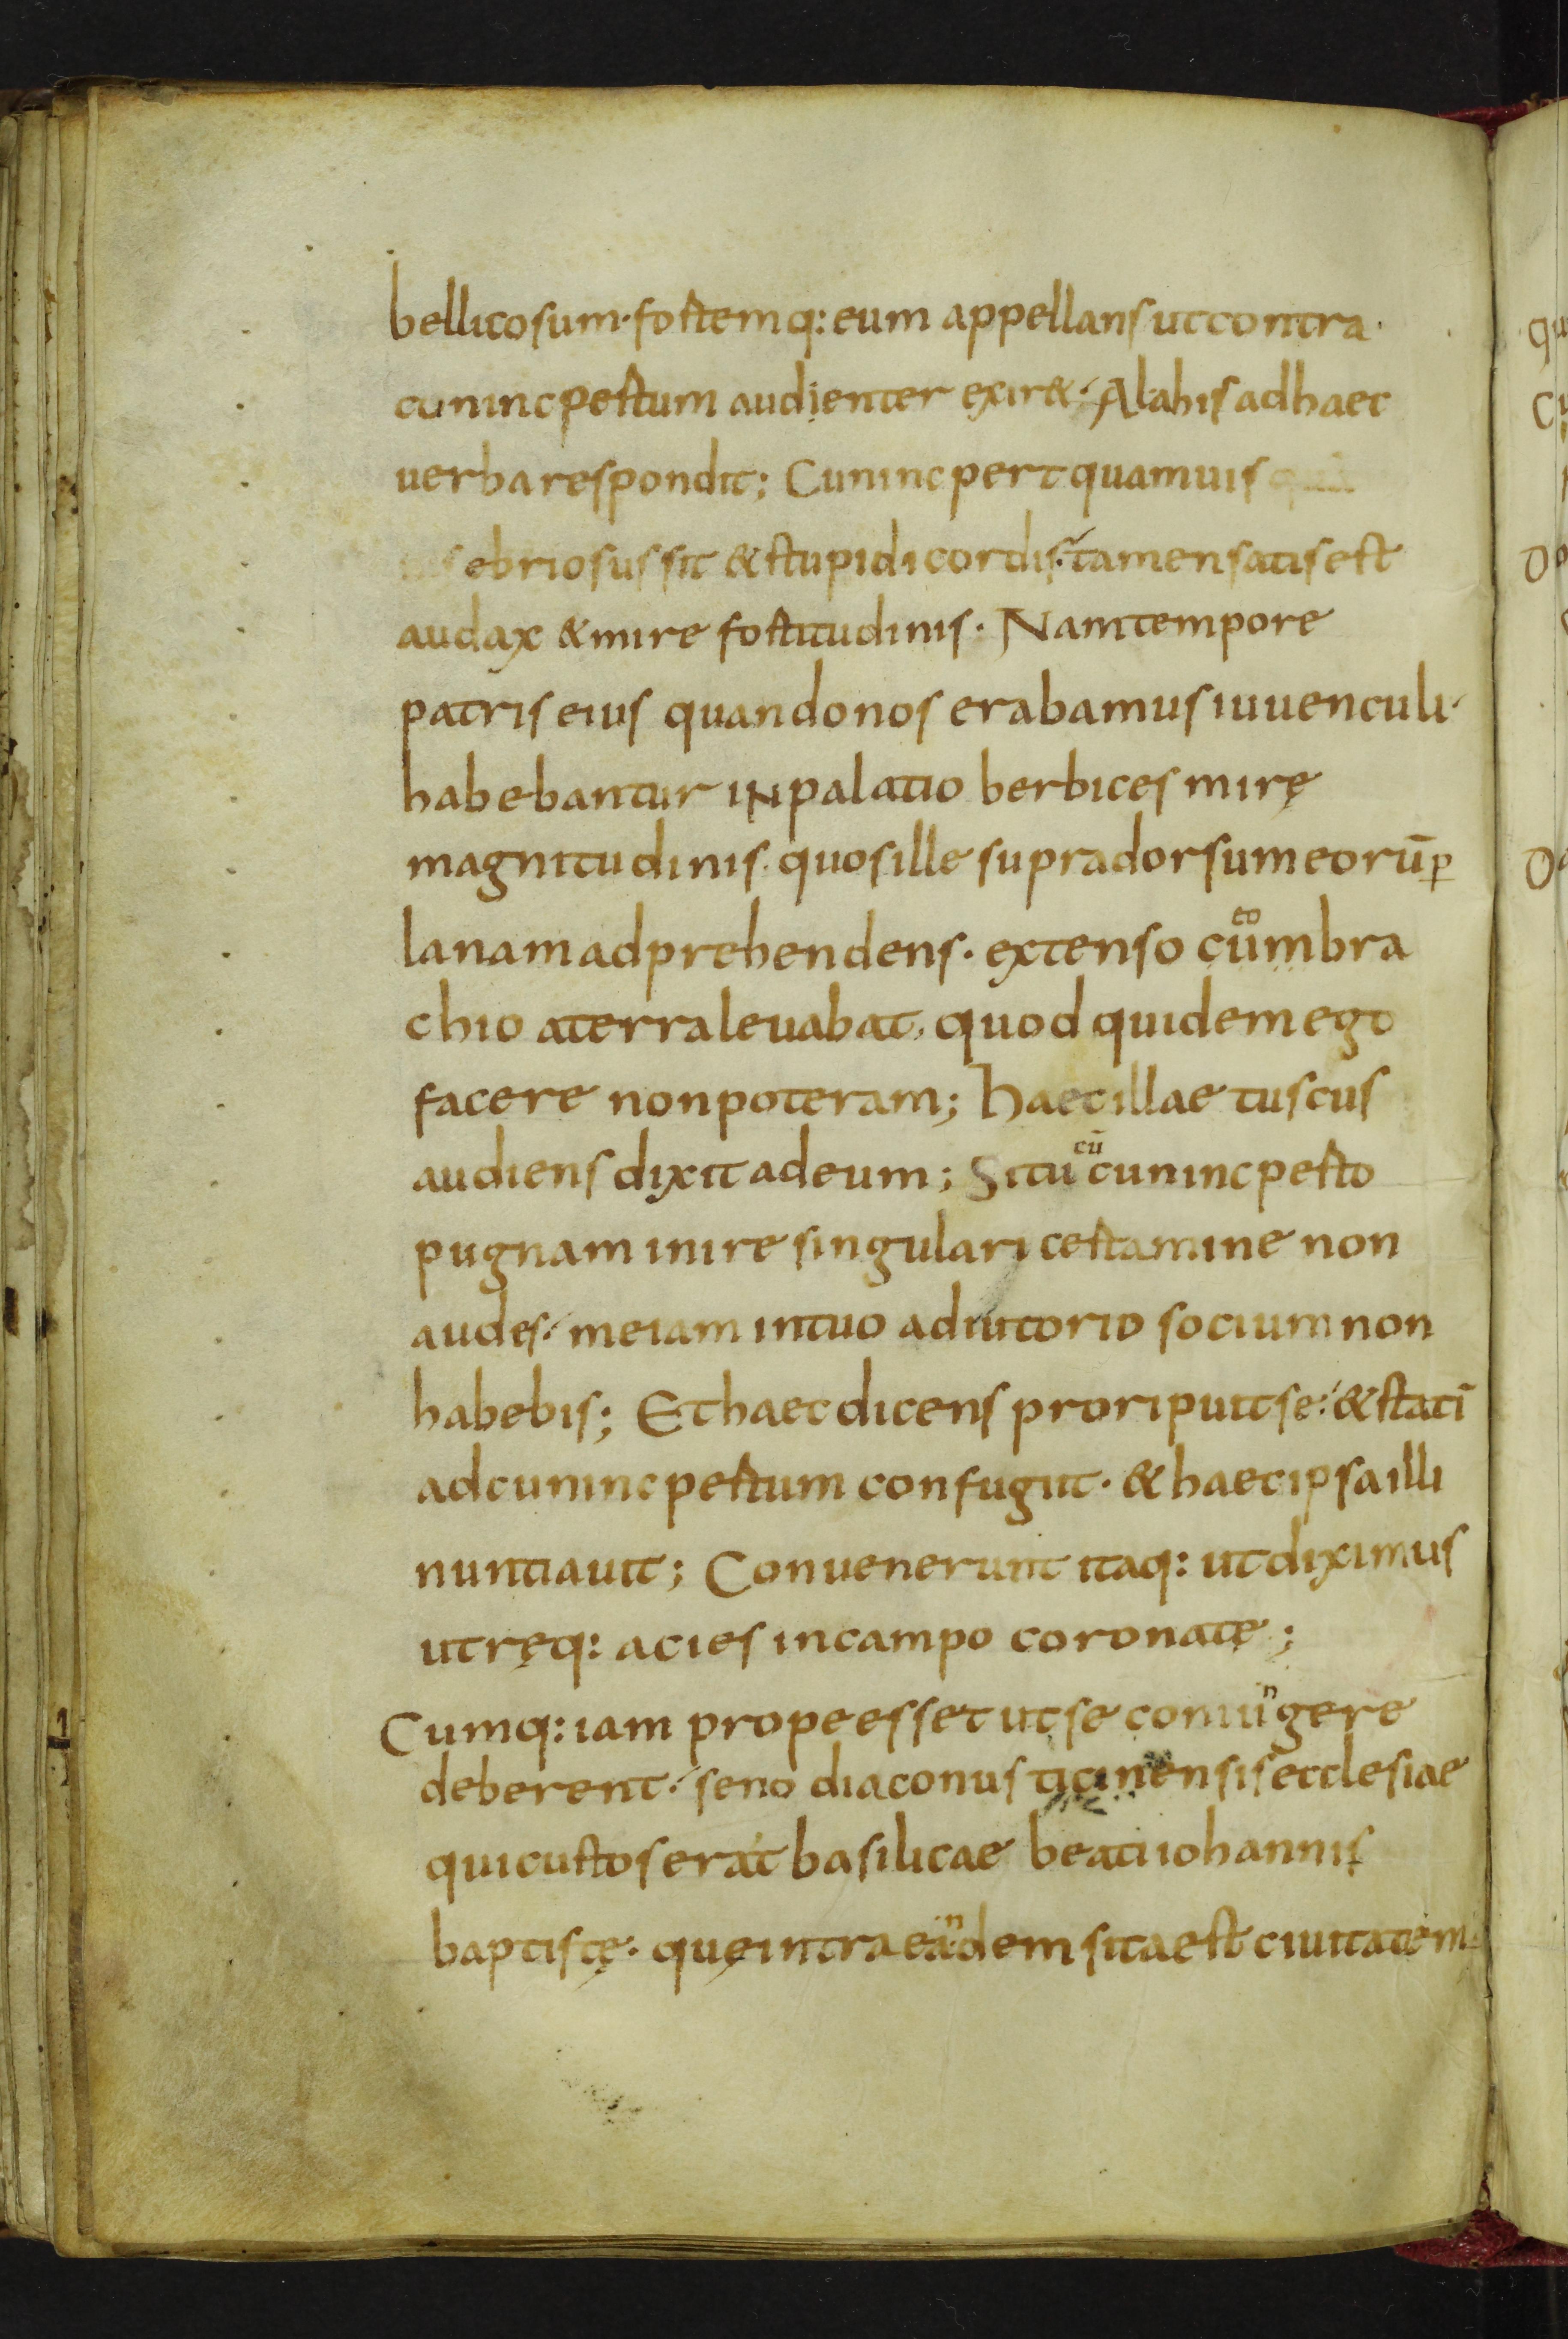 bellicosum· fortemq: eum appellans ut contra·
cunincpertum audienter exir&· Alahis ad haec
uerba respondit; Cunincpert quamuis
ebriosus sit & stupidi cordis· tamen satis est
audax & mire fortitudinis· Nam tempore
patris eius quando nos erabamus iuuenculi·
habebantur in palatio berbices mirę
magnitudinis· quos ille supra dorsum eorū ꝑ
lanam adprehendens· extenso eo cūm bra
chio a terra leuabat, quod quidem ego
facere non poteram; haec illae tuscus
audiens dixit ad eum; Si tu cū cunincperto
pugnam inire singulari certamine non
audes· me iam in tuo adiutorio socium non
habebis; Et haec dicens proripuit se· & statī
ad cunincpertum confugiit· & haec ipsa illi
nuntiauit; Conuenerunt itaq: ut diximus
utręq: acies in campo coronatę;
Cumq: iam prope esset ut se coniungere
deberent· seno diaconus ticinensis ecclesiae
qui custos erat basilicae beati iohannis
baptistę· quę intra eandem sita est ciuitatem·